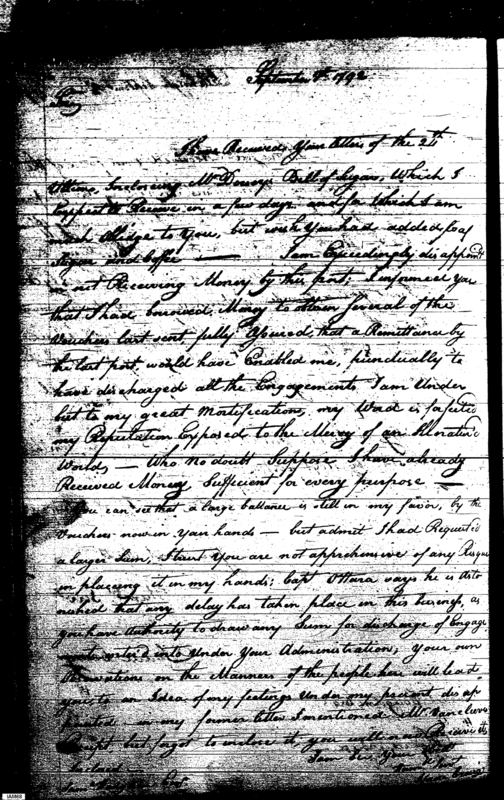 September 8th 1792
Sir
I have Received, Your letters of the 24th
Ultimo, Inclosing Mr Dewey's Bill of Sugar, Which I
Expect to Receive in a few days, and for Which I am
much Obliged to You, but wish You had added Loaf
Sugar and Coffee — I am Exceedingly disappointd
in not Receiving Money by this post; I informed you
that I had borrowed, Money to obtain Several of the
Vouchers last sent fully Assured, that a Remittance by
the last post, would have Enabled me, punctually to
have discharged all the Engagements I am Under
but to my great Mortification, my Word is forfeited
my Reputation Exposed, to the Mercy of an Illnatur'd
World, — Who no doubt Suppose I have already
Received Money, Sufficient for every purpose —
You can see that a large ballance is still in my favor, by the
Vouchers now in Your hands — but admit I had Requested
a larger Sum, I trust You are not apprehensive of any Risque
in placing it in my hands; Capt OHara says he is asto
nished that any delay has taken place in this business, as
you have Authority to draw any Sum for discharge of Engage
ments enter'd into Under Your Administration, your own
Observations on the Manners of the people here will lead
you to an Idea of my feelings Under my present disap
pointed in my former letter I mentioned Mr
Receipt, but forgot to inclose it, you will now Receive it
I am Sir Your